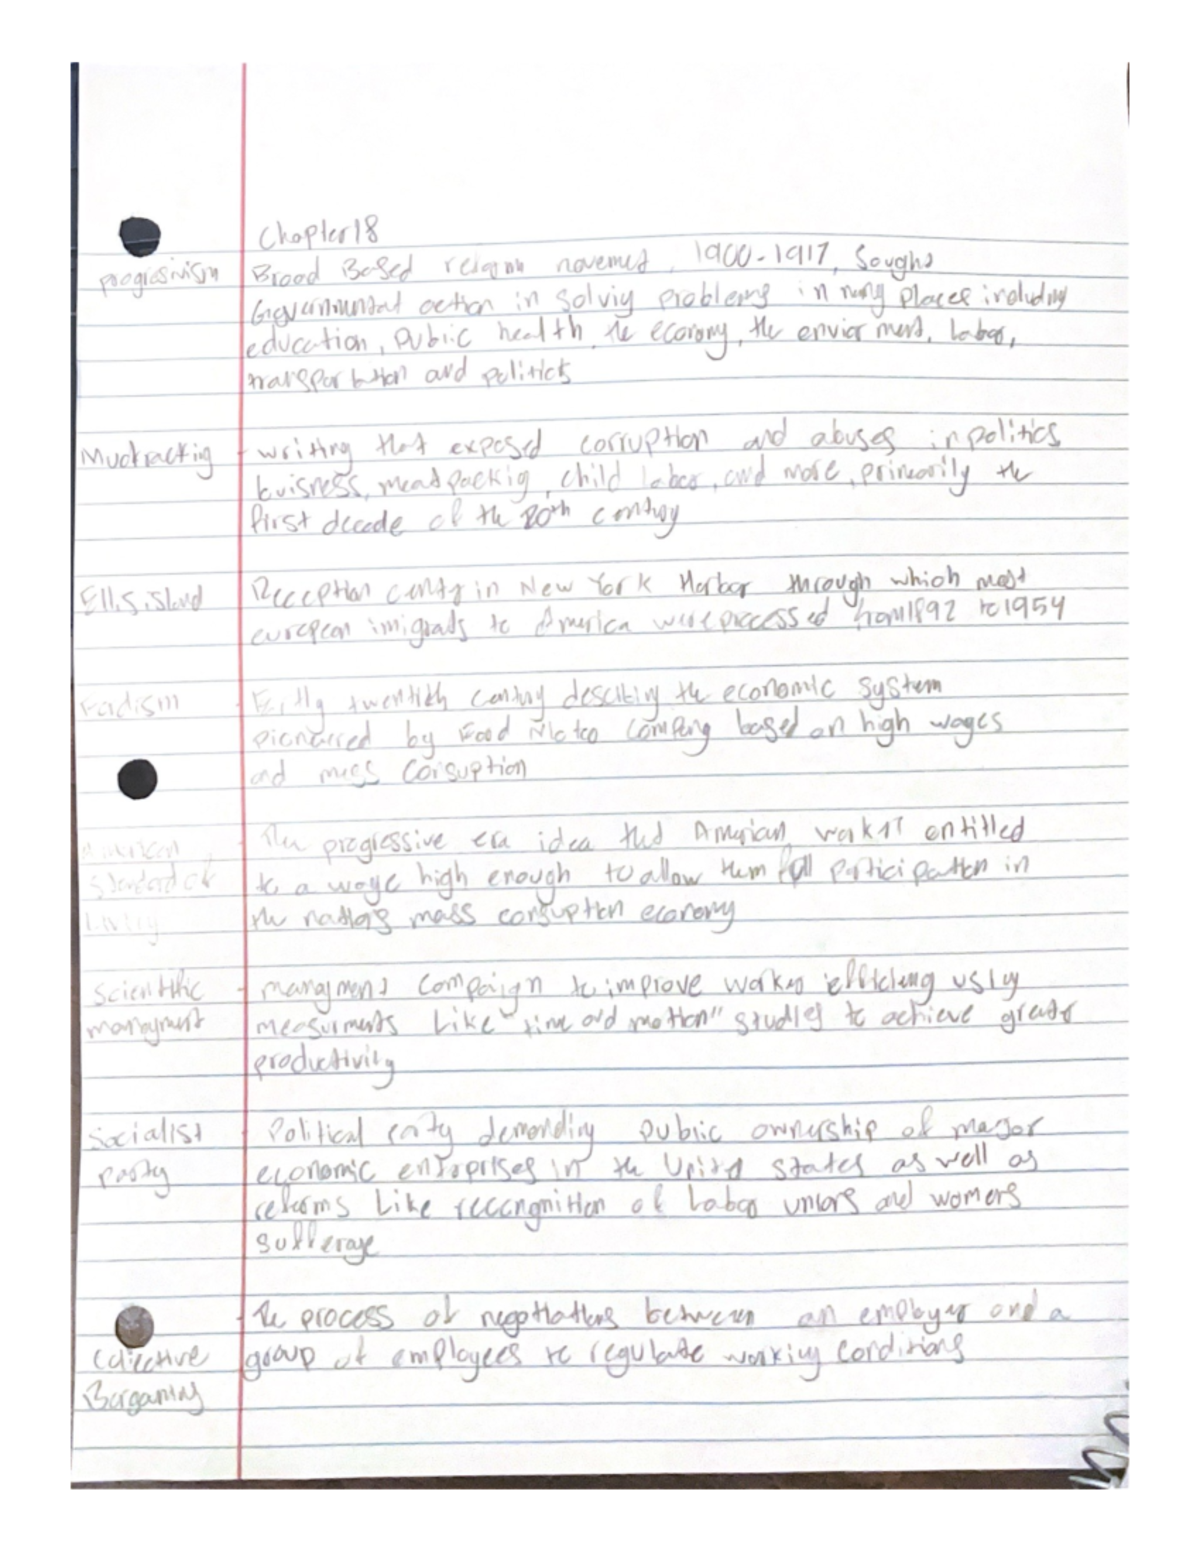 Chapter 18
progressivism Broad Based reform movement, 1900-1917, Sought
Governmental action in solving problems in many places including
education, public health, the economy, the enviorment, Labor,
transportation and politics
Muckracking - writing that exposed corruption and abuses in politics
buisness, meatpackig, child labor, and more, primarily the
first decade of the 20th century
Ellis island Reception center in New York Harbor through which most
european imigrants to America were processed from 1892 to 1954
Fordism - Early twentith century describing the economic system
pioneered by Ford Motor Company based on high wages
and mass consuption
American - The progressive era idea that American worker entitled
Standard of to a wage high enough to allow them full participation in
Living the nations mass consuption economy
Scientific - managment campaign to improve worker efficiency using
managment measurments Like "time and motion" studies to achieve greater
productivity
Socialist - Political party demanding public ownership of major
party economic enterprises in the United States as well as
reforms Like recongnition of Labor unions and womens
sufferage
- The process of negotiations between an employer and a
Collective group of employees to regulate working conditions
Barganing